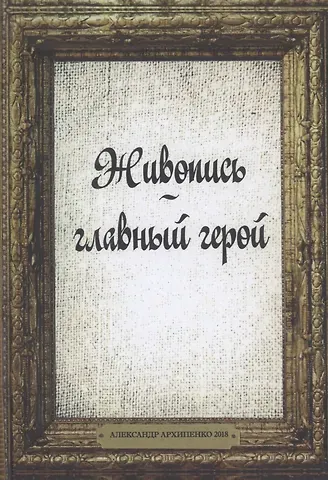 Живопись
~
главный герой
АЛЕКСАНДР АРХИПЕНКО 2018